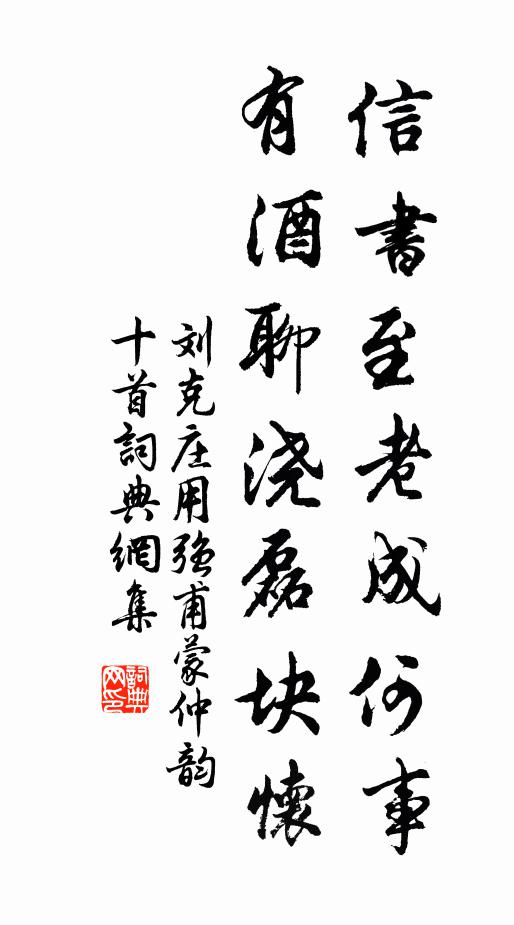 信書至老成何事
有酒聊浇磊块懷
刘克庄用强甫蒙仲韵
十首詞典網集
詞典
网印